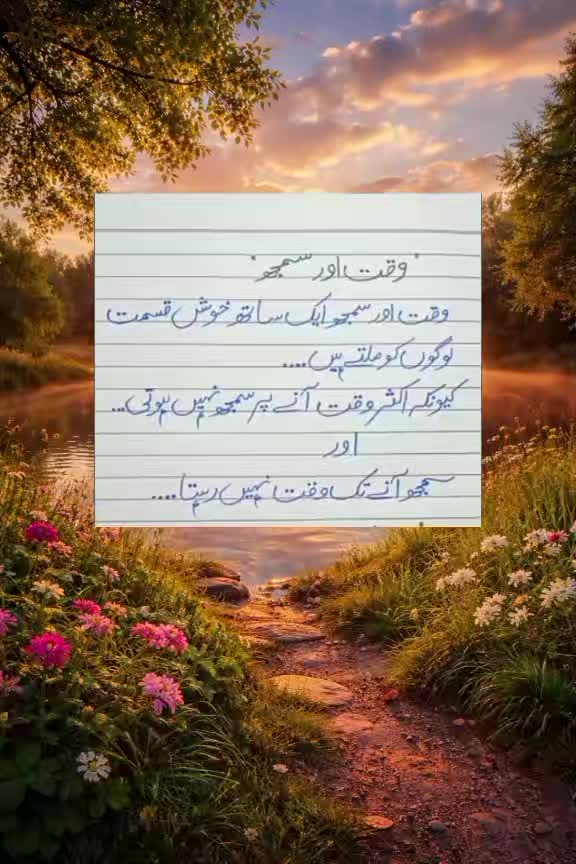 "وقت اور سمجھ"
وقت اور سمجھ ایک ساتھ خوش قسمت
لوگوں کو ملتے ہیں....
کیونکہ اکثر وقت آنے پر سمجھ نہیں ہوتی...
اور
سمجھ آنے تک وقت نہیں رہتا....